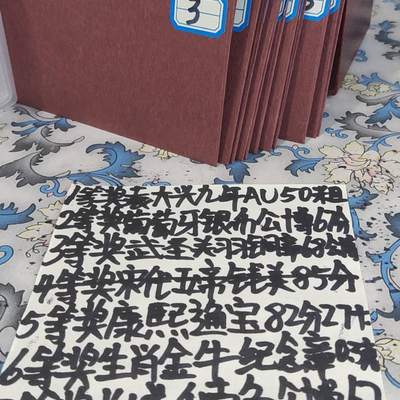 3
1等奖泰大兴九年AU50粗
2等奖葡萄牙银币公博67分
3等奖武圣关羽 68分
4等奖宋代五帝钱美85分
5等奖康熙通宝82分27
6等奖生肖金牛纪念章